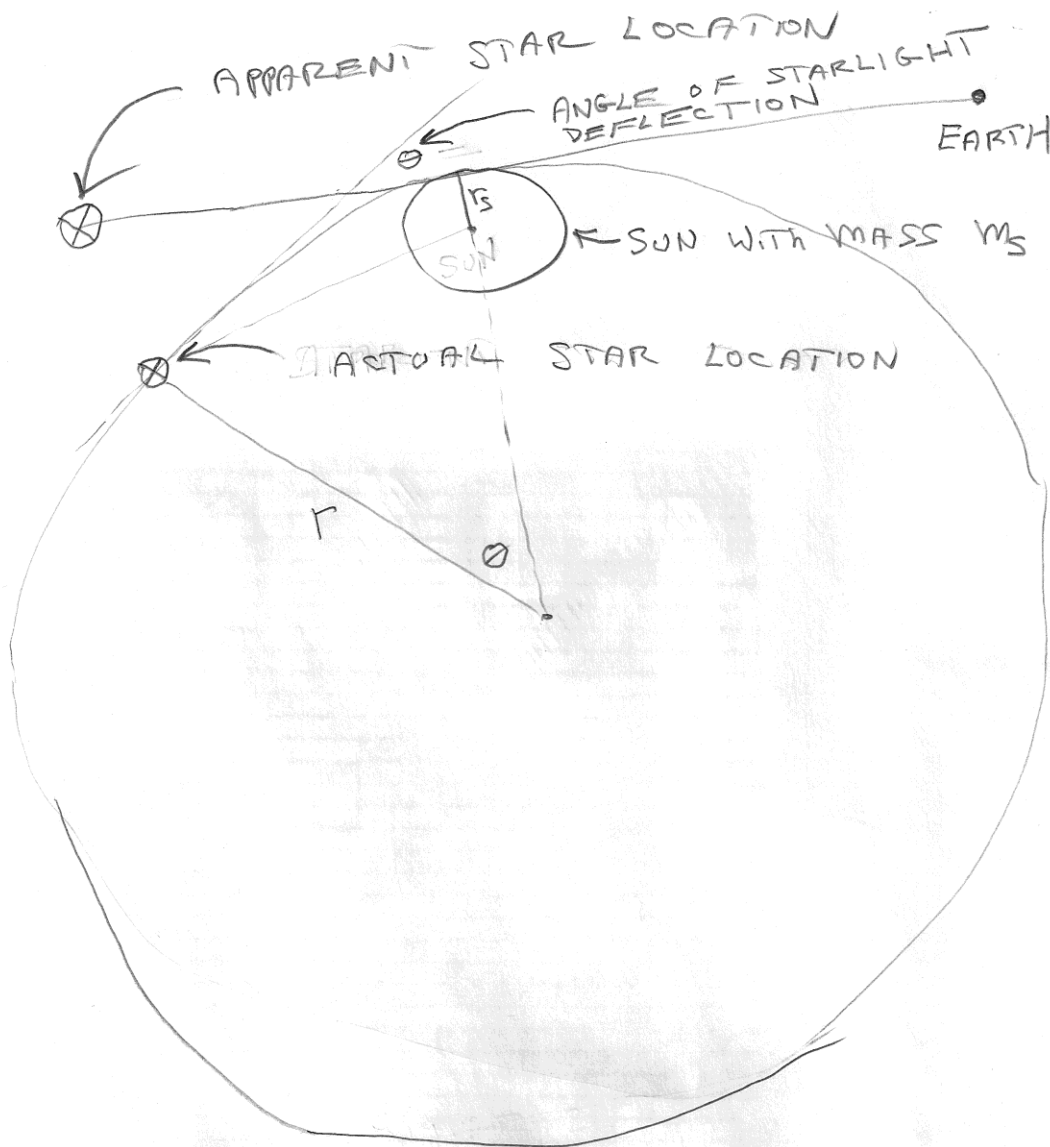 APPARENT STAR LOCATION
ANGLE OF STARLIGHT
DEFLECTION
EARTH
θ
rs
SUN
SUN WITH MASS ms
ACTUAL STAR LOCATION
r
θ